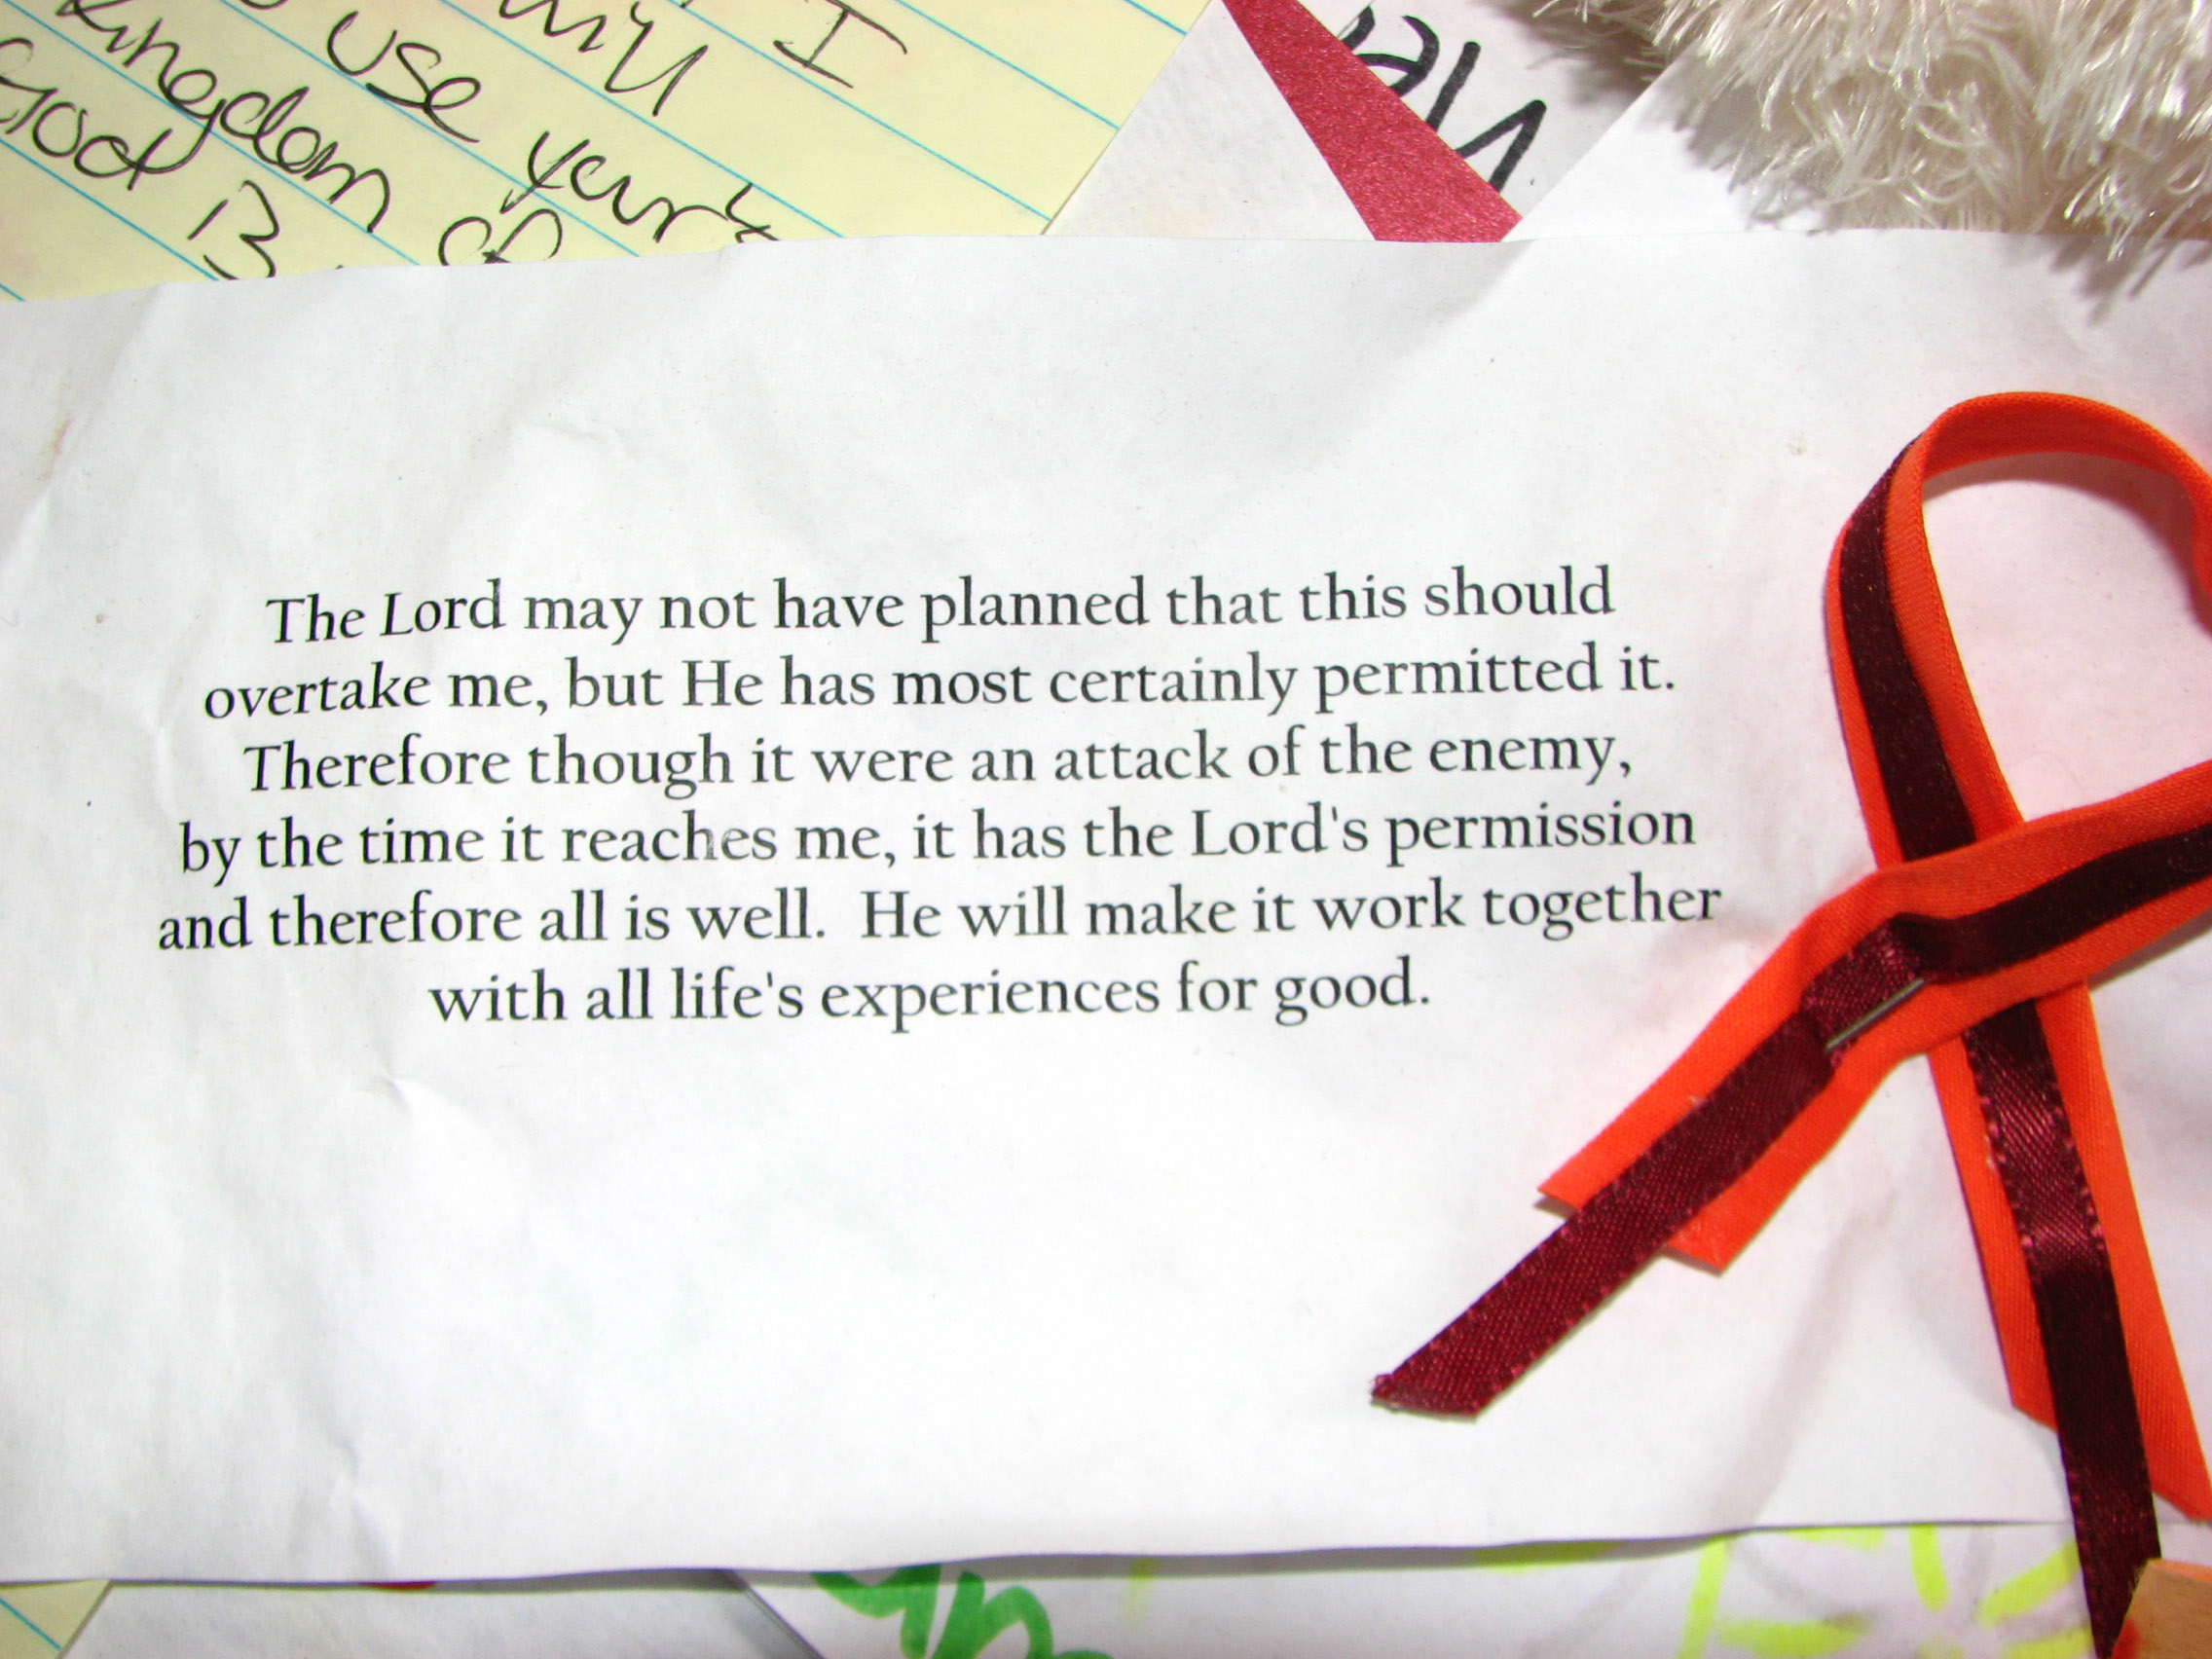 I
will
use your
kingdom of
God is
The Lord may not have planned that this should
overtake me, but He has most certainly permitted it.
Therefore though it were an attack of the enemy,
by the time it reaches me, it has the Lord's permission
and therefore all is well. He will make it work together
with all life's experiences for good.